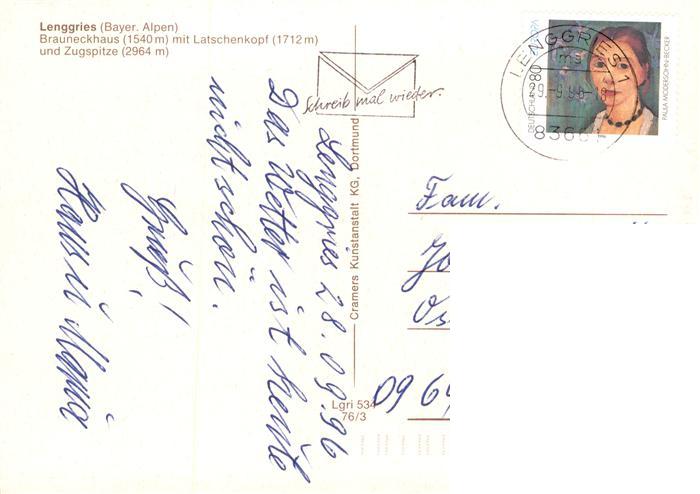 Lenggries (Bayer. Alpen)
Brauneckhaus (1540 m) mit Latschenkopf (1712 m)
und Zugspitze (2964 m)
Schreib mal wieder.
Lenggries 28.09.96
Das Wetter ist heute
nicht schön.
Gruß!
Hans u. Maria
Cramers Kunstanstalt KG, Dortmund
Lgri 534
76/3
LENGGRIES 1
80
DEUTSCHLAND
EUROPA
PAULA MODERSOHN-BECKER
Fam.
Jo
Os
09 6